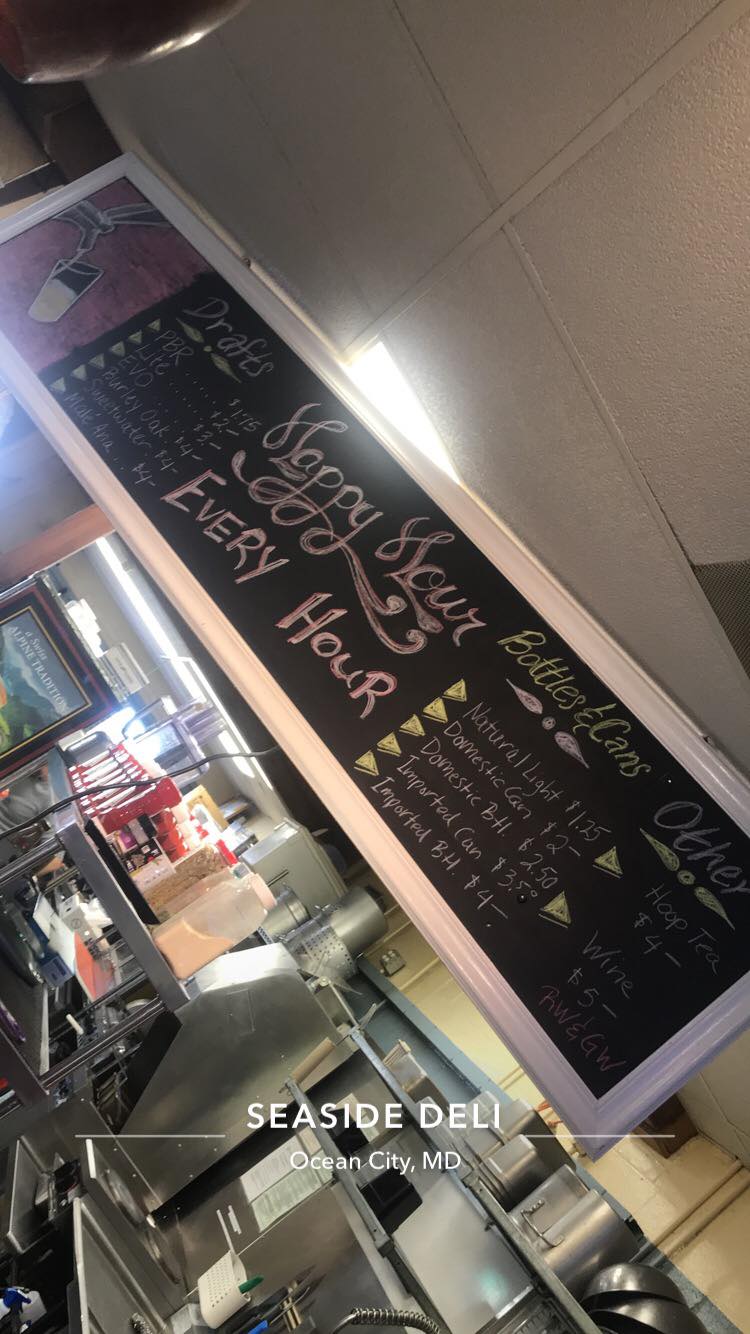 Drafts
PBR ...... $1.75
Lite ...... $2-
EVO ...... $3-
Burley Oak $4-
Sweetwater $4-
Mich Ama . . $4-
Happy Hour
EVERY HOUR
Bottles & Cans
Natural Light $1.25
Domestic Can $2-
Domestic Btl. $2.50
Imported Can $3.50
Imported Btl. $4-
Other
Hoop Tea
$4-
Wine
$5-
RW&GW
a Swiss
ALPINE TRADITION
SEASIDE DELI
Ocean City, MD